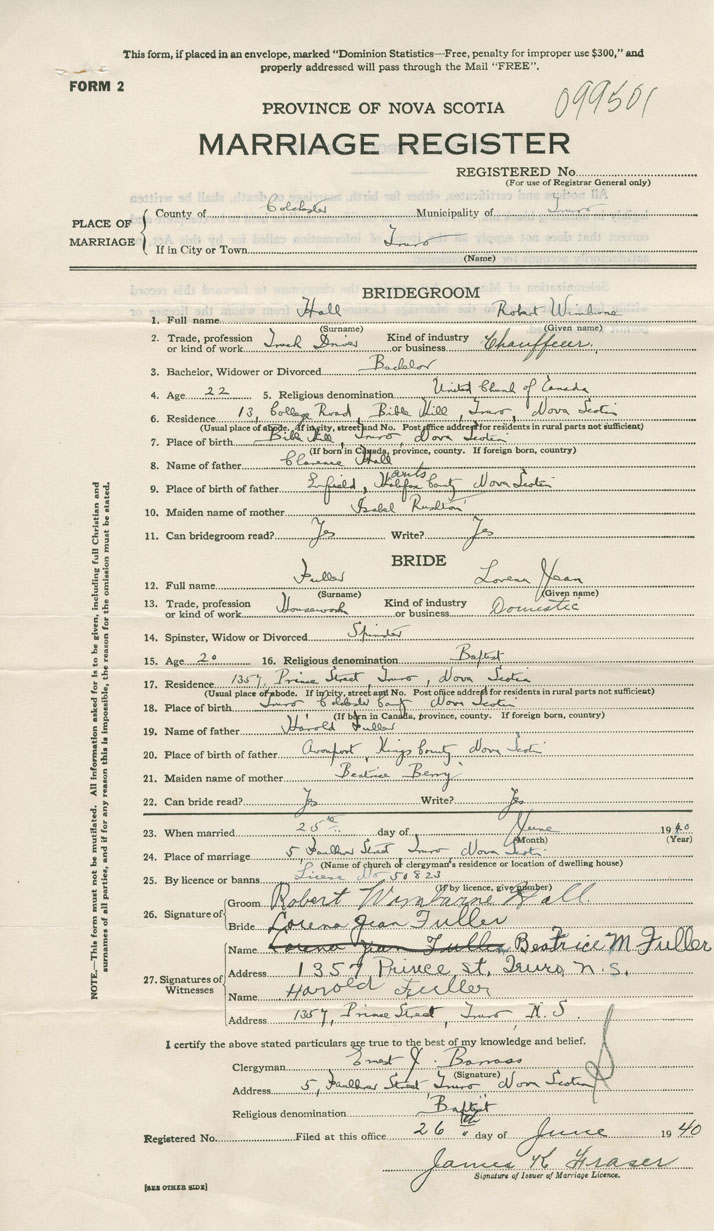 This form, if placed in an envelope, marked "Dominion Statistics—Free, penalty for improper use $300," and
properly addressed will pass through the Mail "FREE".
FORM 2
099501
PROVINCE OF NOVA SCOTIA
MARRIAGE REGISTER
REGISTERED No.
(For use of Registrar General only)
PLACE OF MARRIAGE
County of Colchester Municipality of Truro
If in City or Town Truro
(Name)
BRIDEGROOM
1. Full name Hall Robert Wimburne
(Surname) (Given name)
2. Trade, profession or kind of work Truck Driver Kind of industry or business Chauffeur.
3. Bachelor, Widower or Divorced Bachelor
4. Age 22 5. Religious denomination United Church of Canada
6. Residence 13, College Road, Bible Hill, Truro, Nova Scotia
(Usual place of abode. If in city, street and No. Post office address for residents in rural parts not sufficient)
7. Place of birth Bible Hill, Truro, Nova Scotia
(If born in Canada, province, county. If foreign born, country)
8. Name of father Clarence Hall
9. Place of birth of father Enfield, Halifax Hants County Nova Scotia
10. Maiden name of mother Isabel
11. Can bridegroom read? Yes Write? Yes
BRIDE
12. Full name Fuller Lorena Jean
(Surname) (Given name)
13. Trade, profession or kind of work Housework Kind of industry or business Domestic
14. Spinster, Widow or Divorced Spinster
15. Age 20 16. Religious denomination Baptist
17. Residence 1357, Prince Street, Truro, Nova Scotia
(Usual place of abode. If in city, street and No. Post office address for residents in rural parts not sufficient)
18. Place of birth Truro Colchester County Nova Scotia
(If born in Canada, province, county. If foreign born, country)
19. Name of father Harold Fuller
20. Place of birth of father Avonport, Kings County, Nova Scotia
21. Maiden name of mother Beatrice Berry
22. Can bride read? Yes Write? Yes
23. When married 25th day of June 1940
(Month) (Year)
24. Place of marriage 5 Faulkner Street Truro Nova Scotia
(Name of church or clergyman's residence or location of dwelling house)
25. By licence or banns License No. 50823
(If by licence, give number)
26. Signature of
Groom Robert Wimburne Hall
Bride Lorena Jean Fuller
27. Signatures of Witnesses
Name Lorena Jean Fuller Beatrice M Fuller
Address 1357 Prince St, Truro, N.S.
Name Harold Fuller
Address 1357, Prince Street, Truro, N.S.
I certify the above stated particulars are true to the best of my knowledge and belief.
Clergyman Ernest J. Barrass
(Signature)
Address 5, Faulkner Street Truro Nova Scotia
Religious denomination "Baptist"
Registered No. Filed at this office 26th day of June 1940
James K Fraser
Signature of Issuer of Marriage Licence.
[SEE OTHER SIDE]
NOTE.—This form must not be mutilated. All information asked for is to be given, including full Christian and
surnames of all parties, and if for any reason this is impossible, the reason for the omission must be stated.